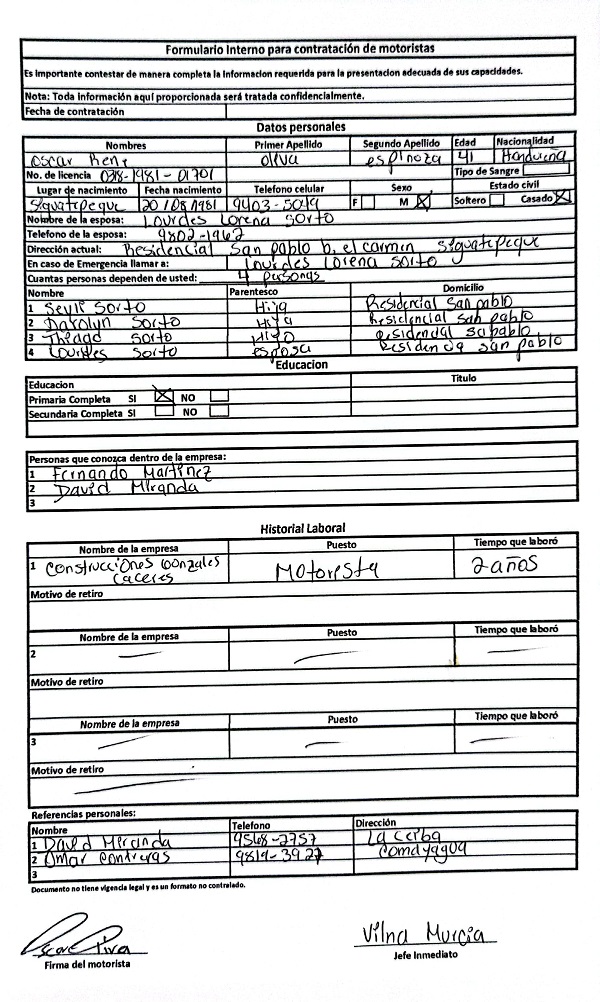 Formulario Interno para contratación de motoristas
Es Importante contestar de manera completa la informacion requerida para la presentacion adecuada de sus capacidades.
Nota: Toda información aquí proporcionada será tratada confidencialmente.
Fecha de contratación
Datos personales
Nombres Primer Apellido Segundo Apellido Edad Nacionalidad
Oscar Rene Oliva espinoza 41 Hondureña
No. de licencia 0318-1981-01701 Tipo de Sangre
Lugar de nacimiento Fecha nacimiento Telefono celular Sexo Estado civil
Siguatepeque 20/08/1981 9403-5049 F M X Soltero Casado X
Nombre de la esposa: Lourdes Lorena Sorto
Telefono de la esposa: 9802-1962
Dirección actual: Residencial San pablo b. el carmin Siguatepeque
En caso de Emergencia llamar a: Lourdes Lorena Sorto
Cuantas personas dependen de usted: 4 personas
Nombre Parentesco Domicilio
1 Sorto Hija Residencial San pablo
2 Sorto Hija Residencial san pablo
3 Thiago Sorto Hijo
4 Lourdes Sorto esposa Residencia san pablo
Educacion
Educacion Titulo
Primaria Completa SI X NO
Secundaria Completa SI NO
Personas que conozca dentro de la empresa:
1 Fernando Martinez
2 David Miranda
3
Historial Laboral
Nombre de la empresa Puesto Tiempo que laboró
1 Construcciones Gonzales Caceres Motoresta 2 años
Motivo de retiro
Nombre de la empresa Puesto Tiempo que laboró
2 — — —
Motivo de retiro
Nombre de la empresa Puesto Tiempo que laboró
3 — — —
Motivo de retiro
—
Referencias personales:
Nombre Telefono Dirección
1 David Miranda 9568-2757 La ceiba
2 Omar Contreras 9819-3927 Comayagua
3
Documento no tiene vigencia legal y es un formato no controlado.
Vilna Murcia
Firma del motorista Jefe Inmediato